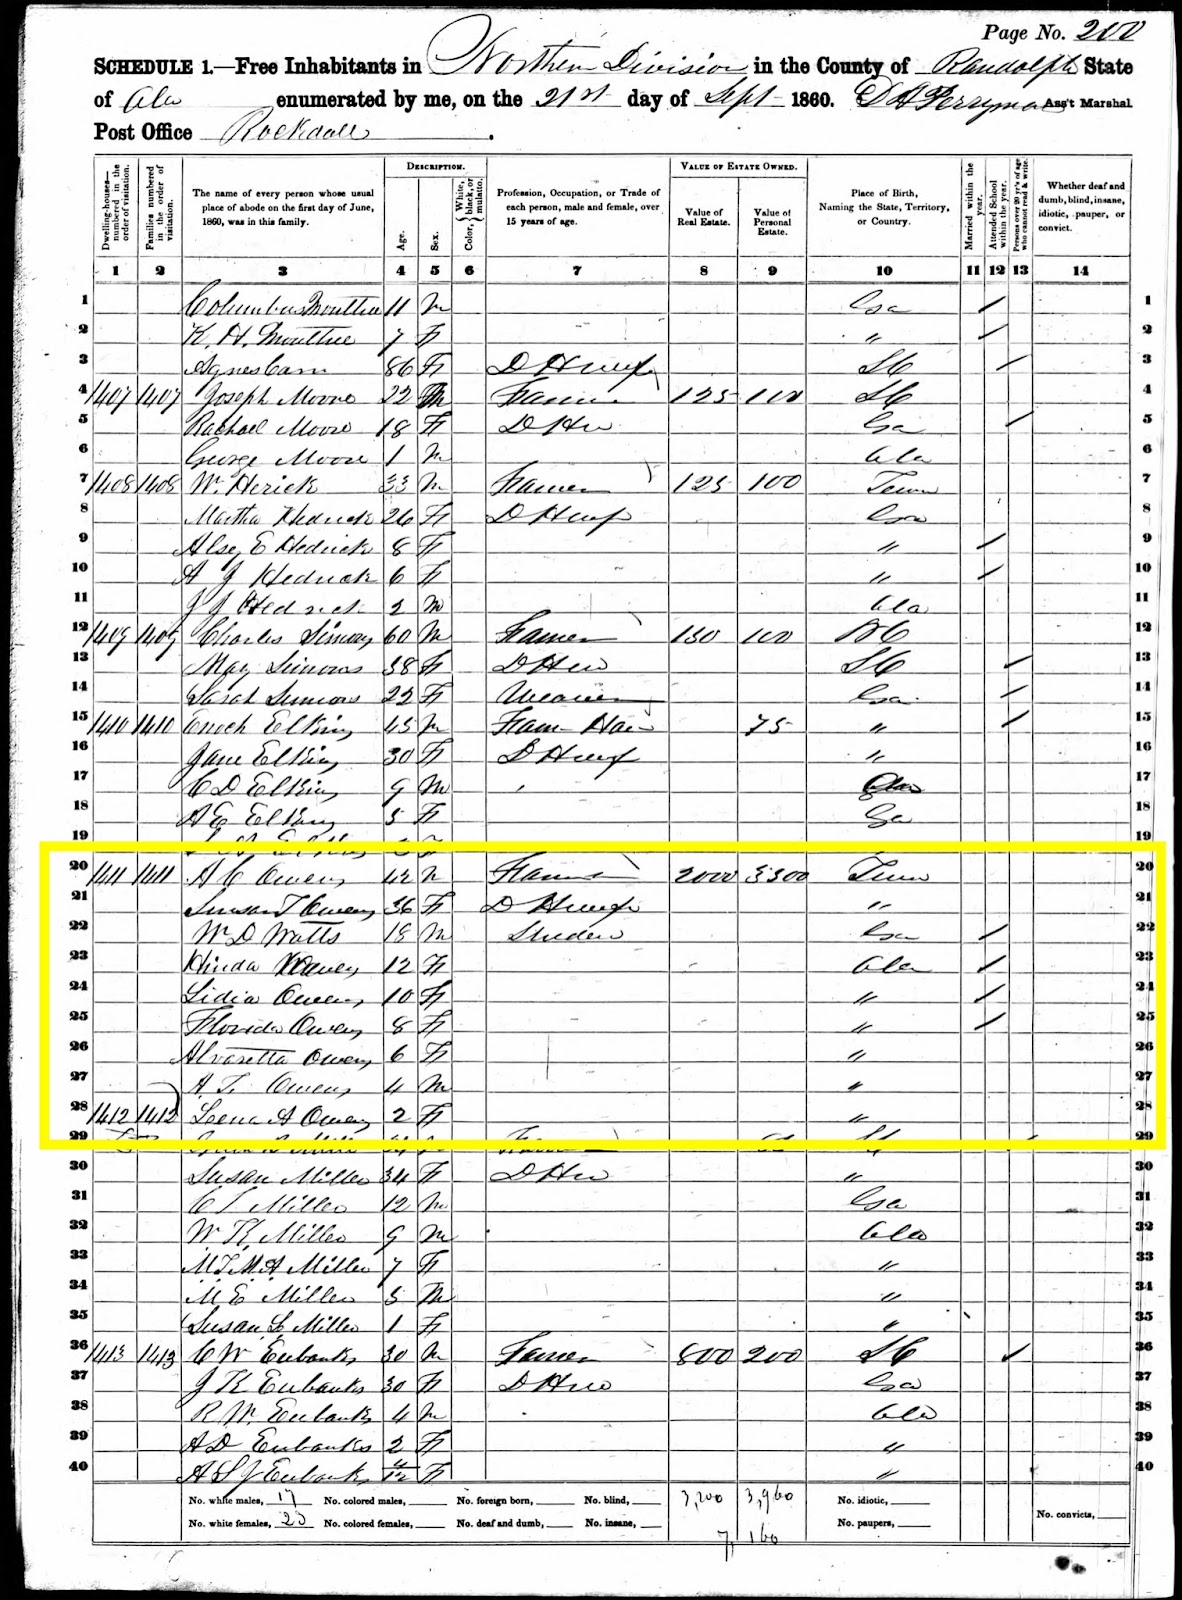 Page No. 200
SCHEDULE 1.—Free Inhabitants in Northern Division in the County of Randolph State
of Ala enumerated by me, on the 21st day of Sept 1860. Perryman Ass't Marshal.
Post Office Rockdale .
Dwelling-houses— numbered in the order of visitation.
Families numbered in the order of visitation.
The name of every person whose usual place of abode on the first day of June, 1860, was in this family.
DESCRIPTION.
Age.
Sex.
Color, White, black, or mulatto.
Profession, Occupation, or Trade of each person, male and female, over 15 years of age.
VALUE OF ESTATE OWNED.
Value of Real Estate.
Value of Personal Estate.
Place of Birth, Naming the State, Territory, or Country.
Married within the year.
Attended School within the year.
Persons over 20 yr's of age who cannot read & write.
Whether deaf and dumb, blind, insane, idiotic, pauper, or convict.
1 2 3 4 5 6 7 8 9 10 11 12 13 14
1 Columbus 11 m Ga / 1
2 K. H. 7 F " / 2
3 Agnes 86 F D SC / 3
4 1407 1407 Joseph Moore 22 m Farmer 125 100 SC 4
5 Rachael Moore 18 F D Ga / 5
6 George Moore 1 m Ala 6
7 1408 1408 W. Herick 33 m Farmer 125 100 Tenn 7
8 Martha Hedrick 26 F D Ga 8
9 Alsey E Hedrick 8 F " / 9
10 A J Hedrick 6 F " / 10
11 J J Hedrick 2 m Ala 11
12 1409 1409 Charles 60 m Farmer 130 100 NC 12
13 May Simons 38 F D SC / 13
14 Sarah Simons 22 F Weaver Ga / 14
15 1410 1410 Enoch Elkins 45 m Farm 75 " / 15
16 Jane Elkins 30 F D " 16
17 C D Elkins 9 m Ala 17
18 A E Elkins 5 F Ga 18
19 19
20 1411 1411 A C Owens 42 m Farmer 2000 3300 Tenn 20
21 Susan T Owens 36 F D " 21
22 W D Watts 18 m Student Ga / 22
23 12 F Ala / 23
24 Lidia Owens 10 F " / 24
25 Florida Owens 8 F " / 25
26 Alvaretta Owens 6 F " 26
27 A. T. Owens 4 m " 27
28 1412 1412 A Owens 2 F " 28
29 29
30 Susan Miller 34 F D " 30
31 C T Miller 12 m Ga 31
32 W K Miller 9 m Ala 32
33 M T M A Miller 7 F " 33
34 M E Miller 5 m " 34
35 Susan L Miller 1 F " 35
36 1413 1413 C W Eubanks 30 m Farmer 800 200 SC / 36
37 J K Eubanks 30 F D Ga 37
38 R W Eubanks 4 m Ala 38
39 A D Eubanks 2 F " 39
40 A S J Eubanks 4/12 F " 40
No. white males, 17 No. colored males, No. foreign born, No. blind, 3,200 3,960 No. idiotic,
No. white females, 23 No. colored females, No. deaf and dumb, No. insane, No. paupers, No. convicts,
7,160